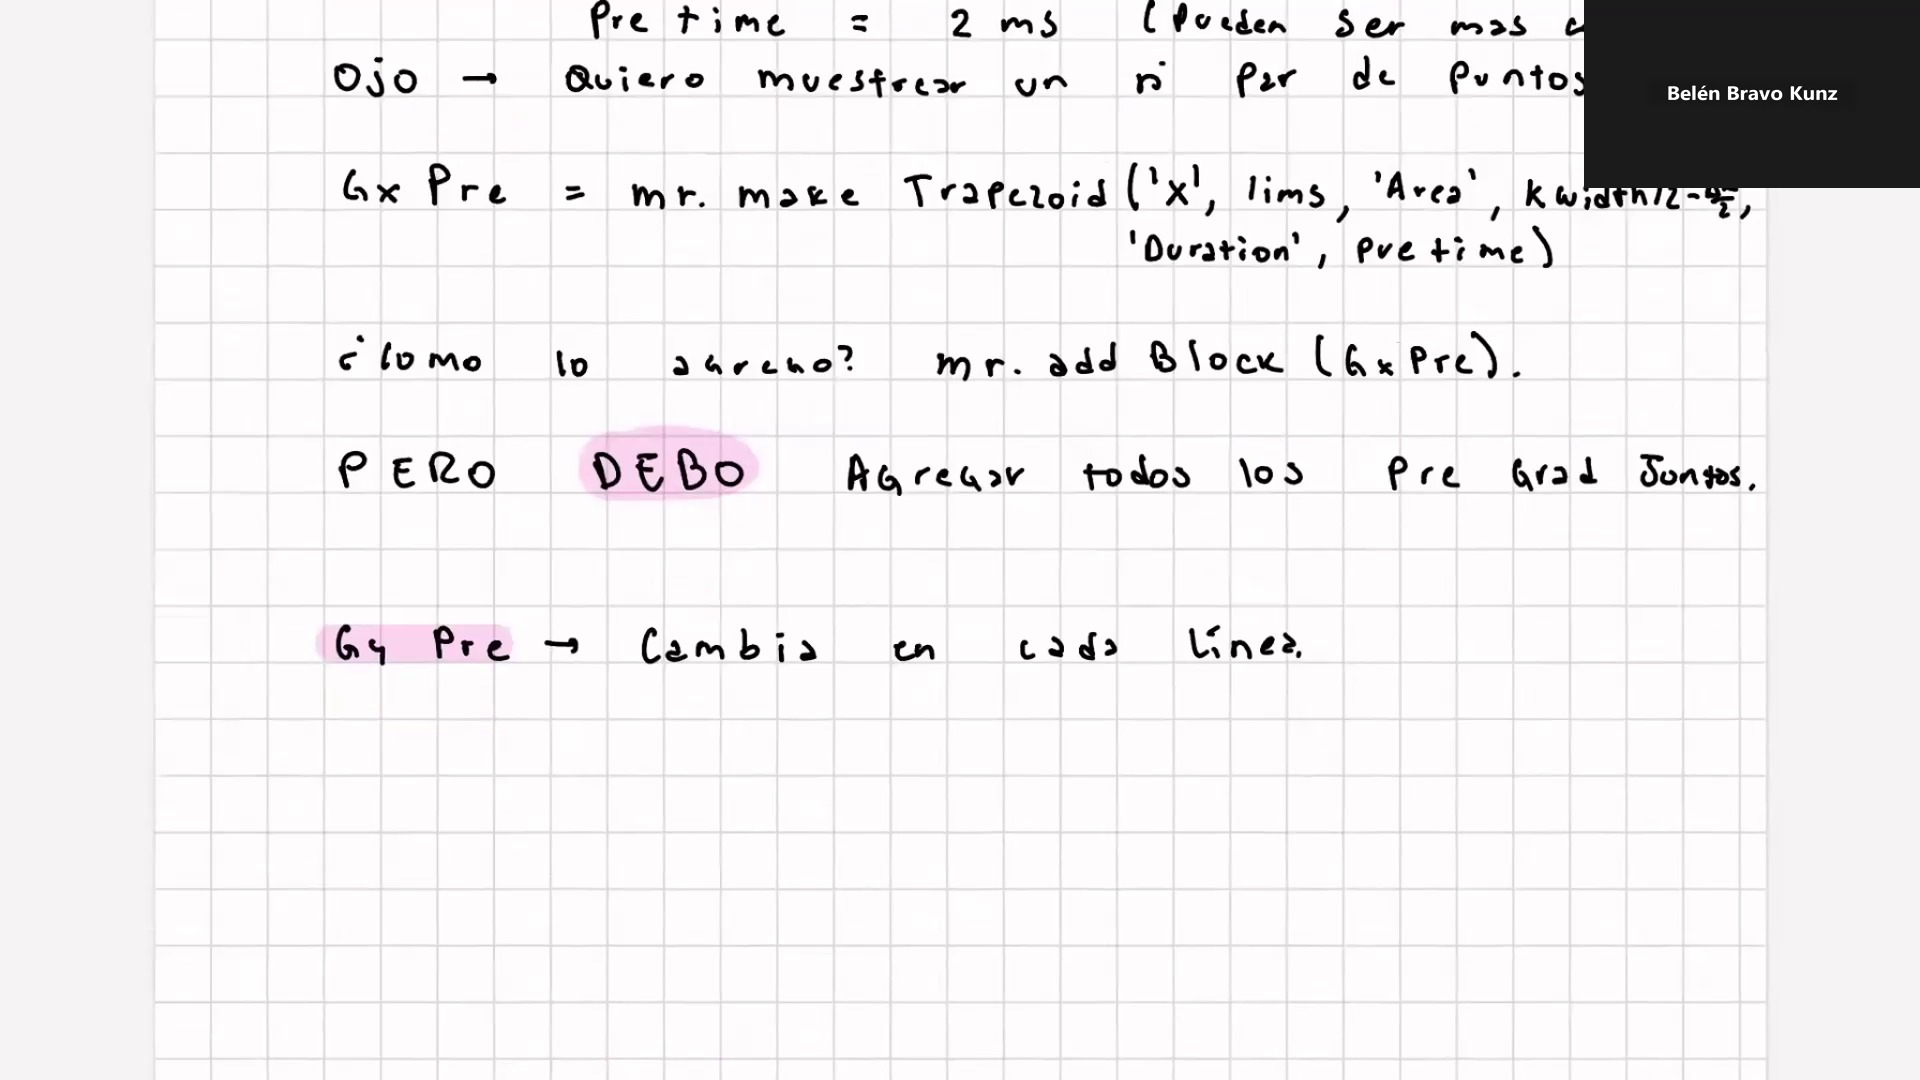 Pre time = 2 ms (Pueden ser mas
Ojo → Quiero muestrear un n° par de puntos
Belén Bravo Kunz
Gx Pre = mr. make Trapezoid ('x', lims, 'Area', kwidth/2 -
'Duration', pre time)
¿Como lo agrego? mr. add Block (Gx Pre).
PERO DEBO Agregar todos los Pre Grad Juntos.
Gy Pre → Cambia en cada línea.